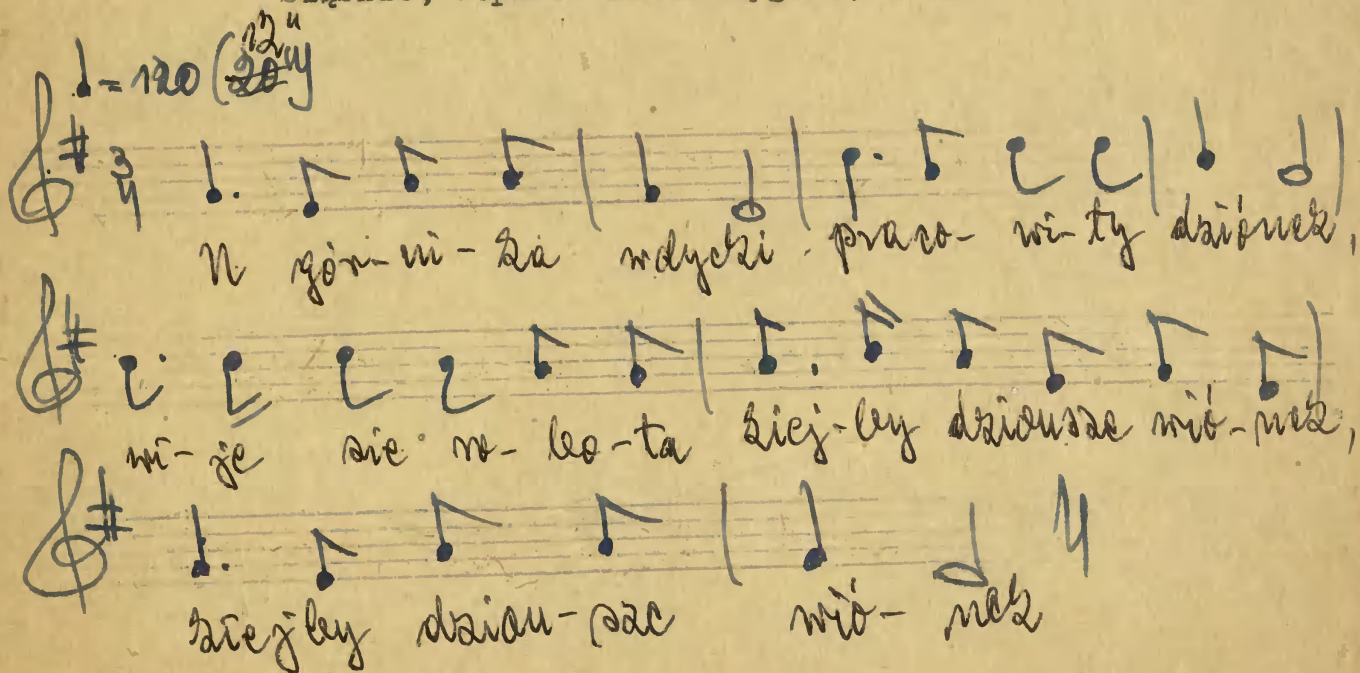 ♩ = 120 (12")
3/4
U gór-ni-ka wdycki praco-wi-ty dziónek,
wi-je sie ro-bo-ta kiej-by dziousze wió-nek,
kiejby dziou-sze wió-nek